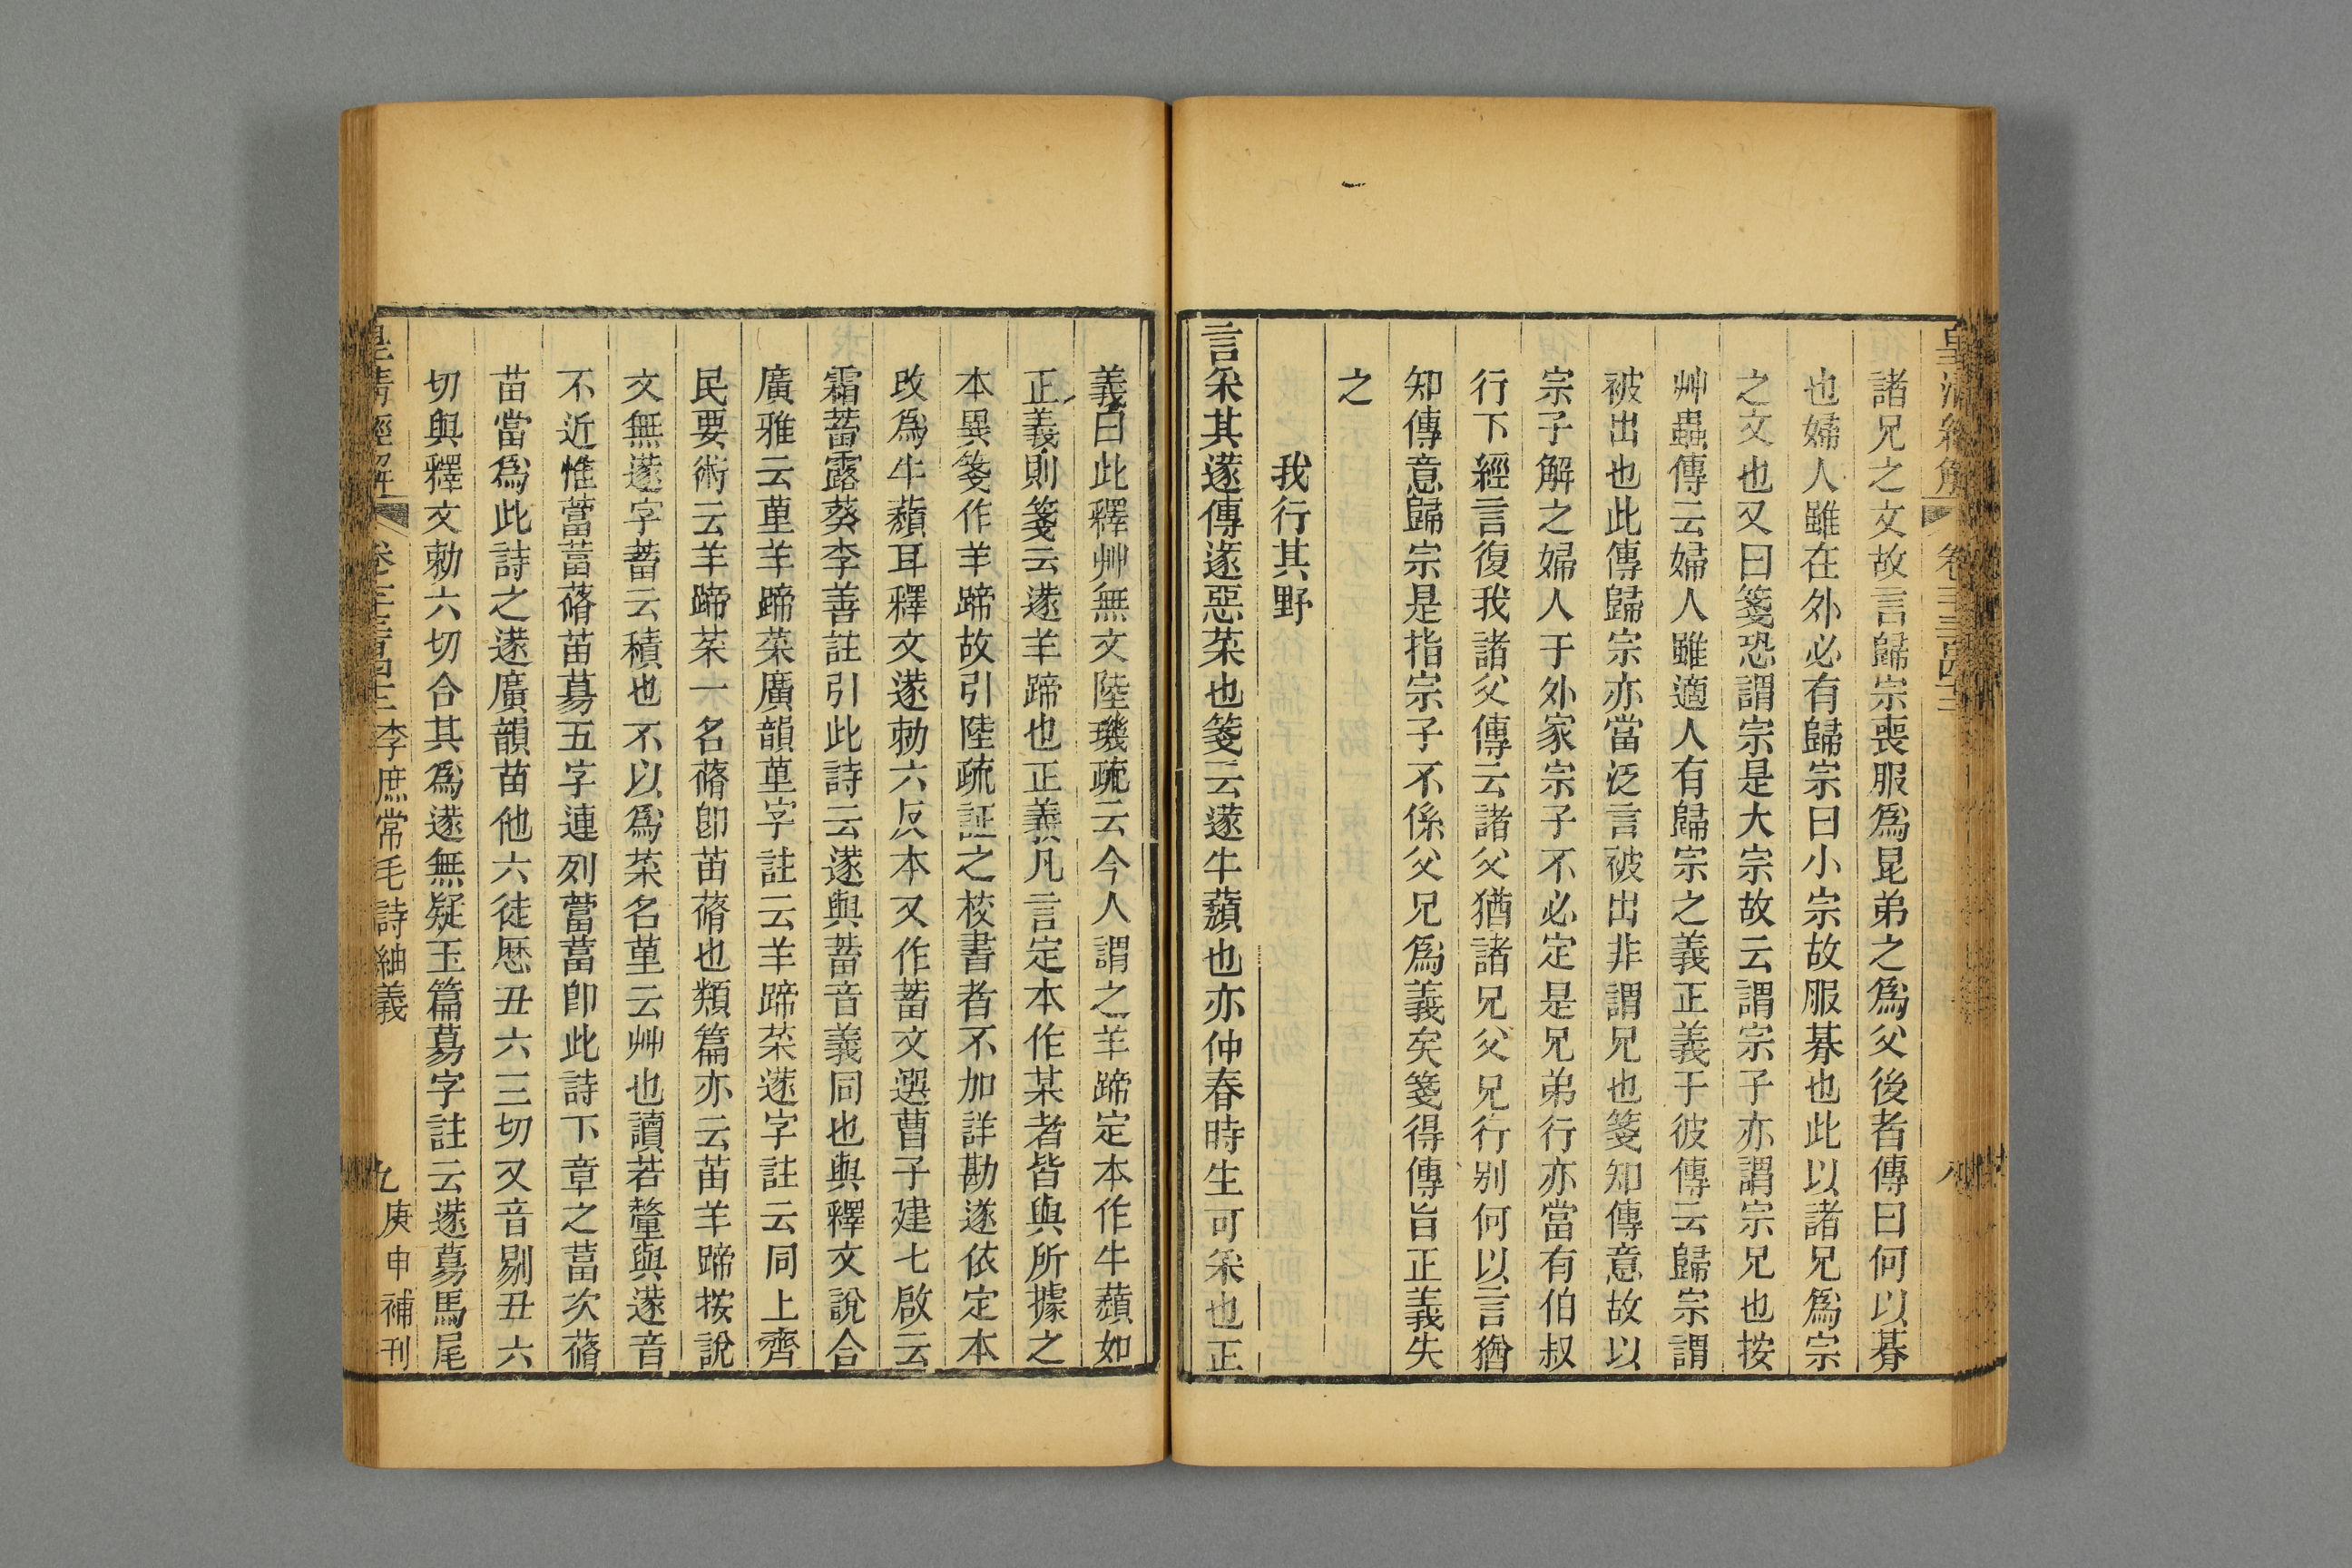 諸兄之文故言歸宗喪服爲昆弟之爲父後者傳曰何以朞
也婦人雖在外必有歸宗曰小宗故服朞也此以諸兄爲宗
之文也又曰箋恐謂宗是大宗故云謂宗子亦謂宗兄也按
艸蟲傳云婦人雖適人有歸宗之義正義于彼傳云歸宗謂
被出也此傳歸宗亦當泛言被出非謂兄也箋知傳意故以
宗子解之婦人于外家宗子不必定是兄弟行亦當有伯叔
行下經言復我諸父傳云諸父猶諸兄父兄行別何以言猶
知傳意歸宗是指宗子不係父兄爲義矣箋得傳旨正義失
之
我行其野
言采其蓫傳蓫惡菜也箋云蓫牛蘈也亦仲春時生可采也正
義曰此釋艸無文陸璣疏云今人謂之羊蹄定本作牛蘈如
正義則箋云蓫羊蹄也正義凡言定本作某者皆與所據之
本異箋作羊蹄故引陸疏証之校書者不加詳勘遂依定本
改爲牛蘈耳釋文蓫勅六反本又作蓄文選曹子建七啟云
霜蓄露葵李善註引此詩云蓫與蓄音義同也與釋文說合
廣雅云堇羊蹄菜廣韻堇字註云羊蹄菜蓫字註云同上齊
民要術云羊蹄菜一名蓨卽苗蓨也類篇亦云苗羊蹄按說
文無蓫字蓄云積也不以爲菜名堇云艸也讀若釐與蓫音
不近惟藑葍蓨苗蕩五字連列藑葍卽此詩下章之葍次蓨
苗當爲此詩之蓫廣韻苗他六徒歷丑六三切又音剔丑六
切與釋文勅六切合其爲蓫無疑玉篇蕩字註云蓫蕩馬尾
皇清經解 卷一千三百四十三 李庶常毛詩紬義 九 庚申補刊